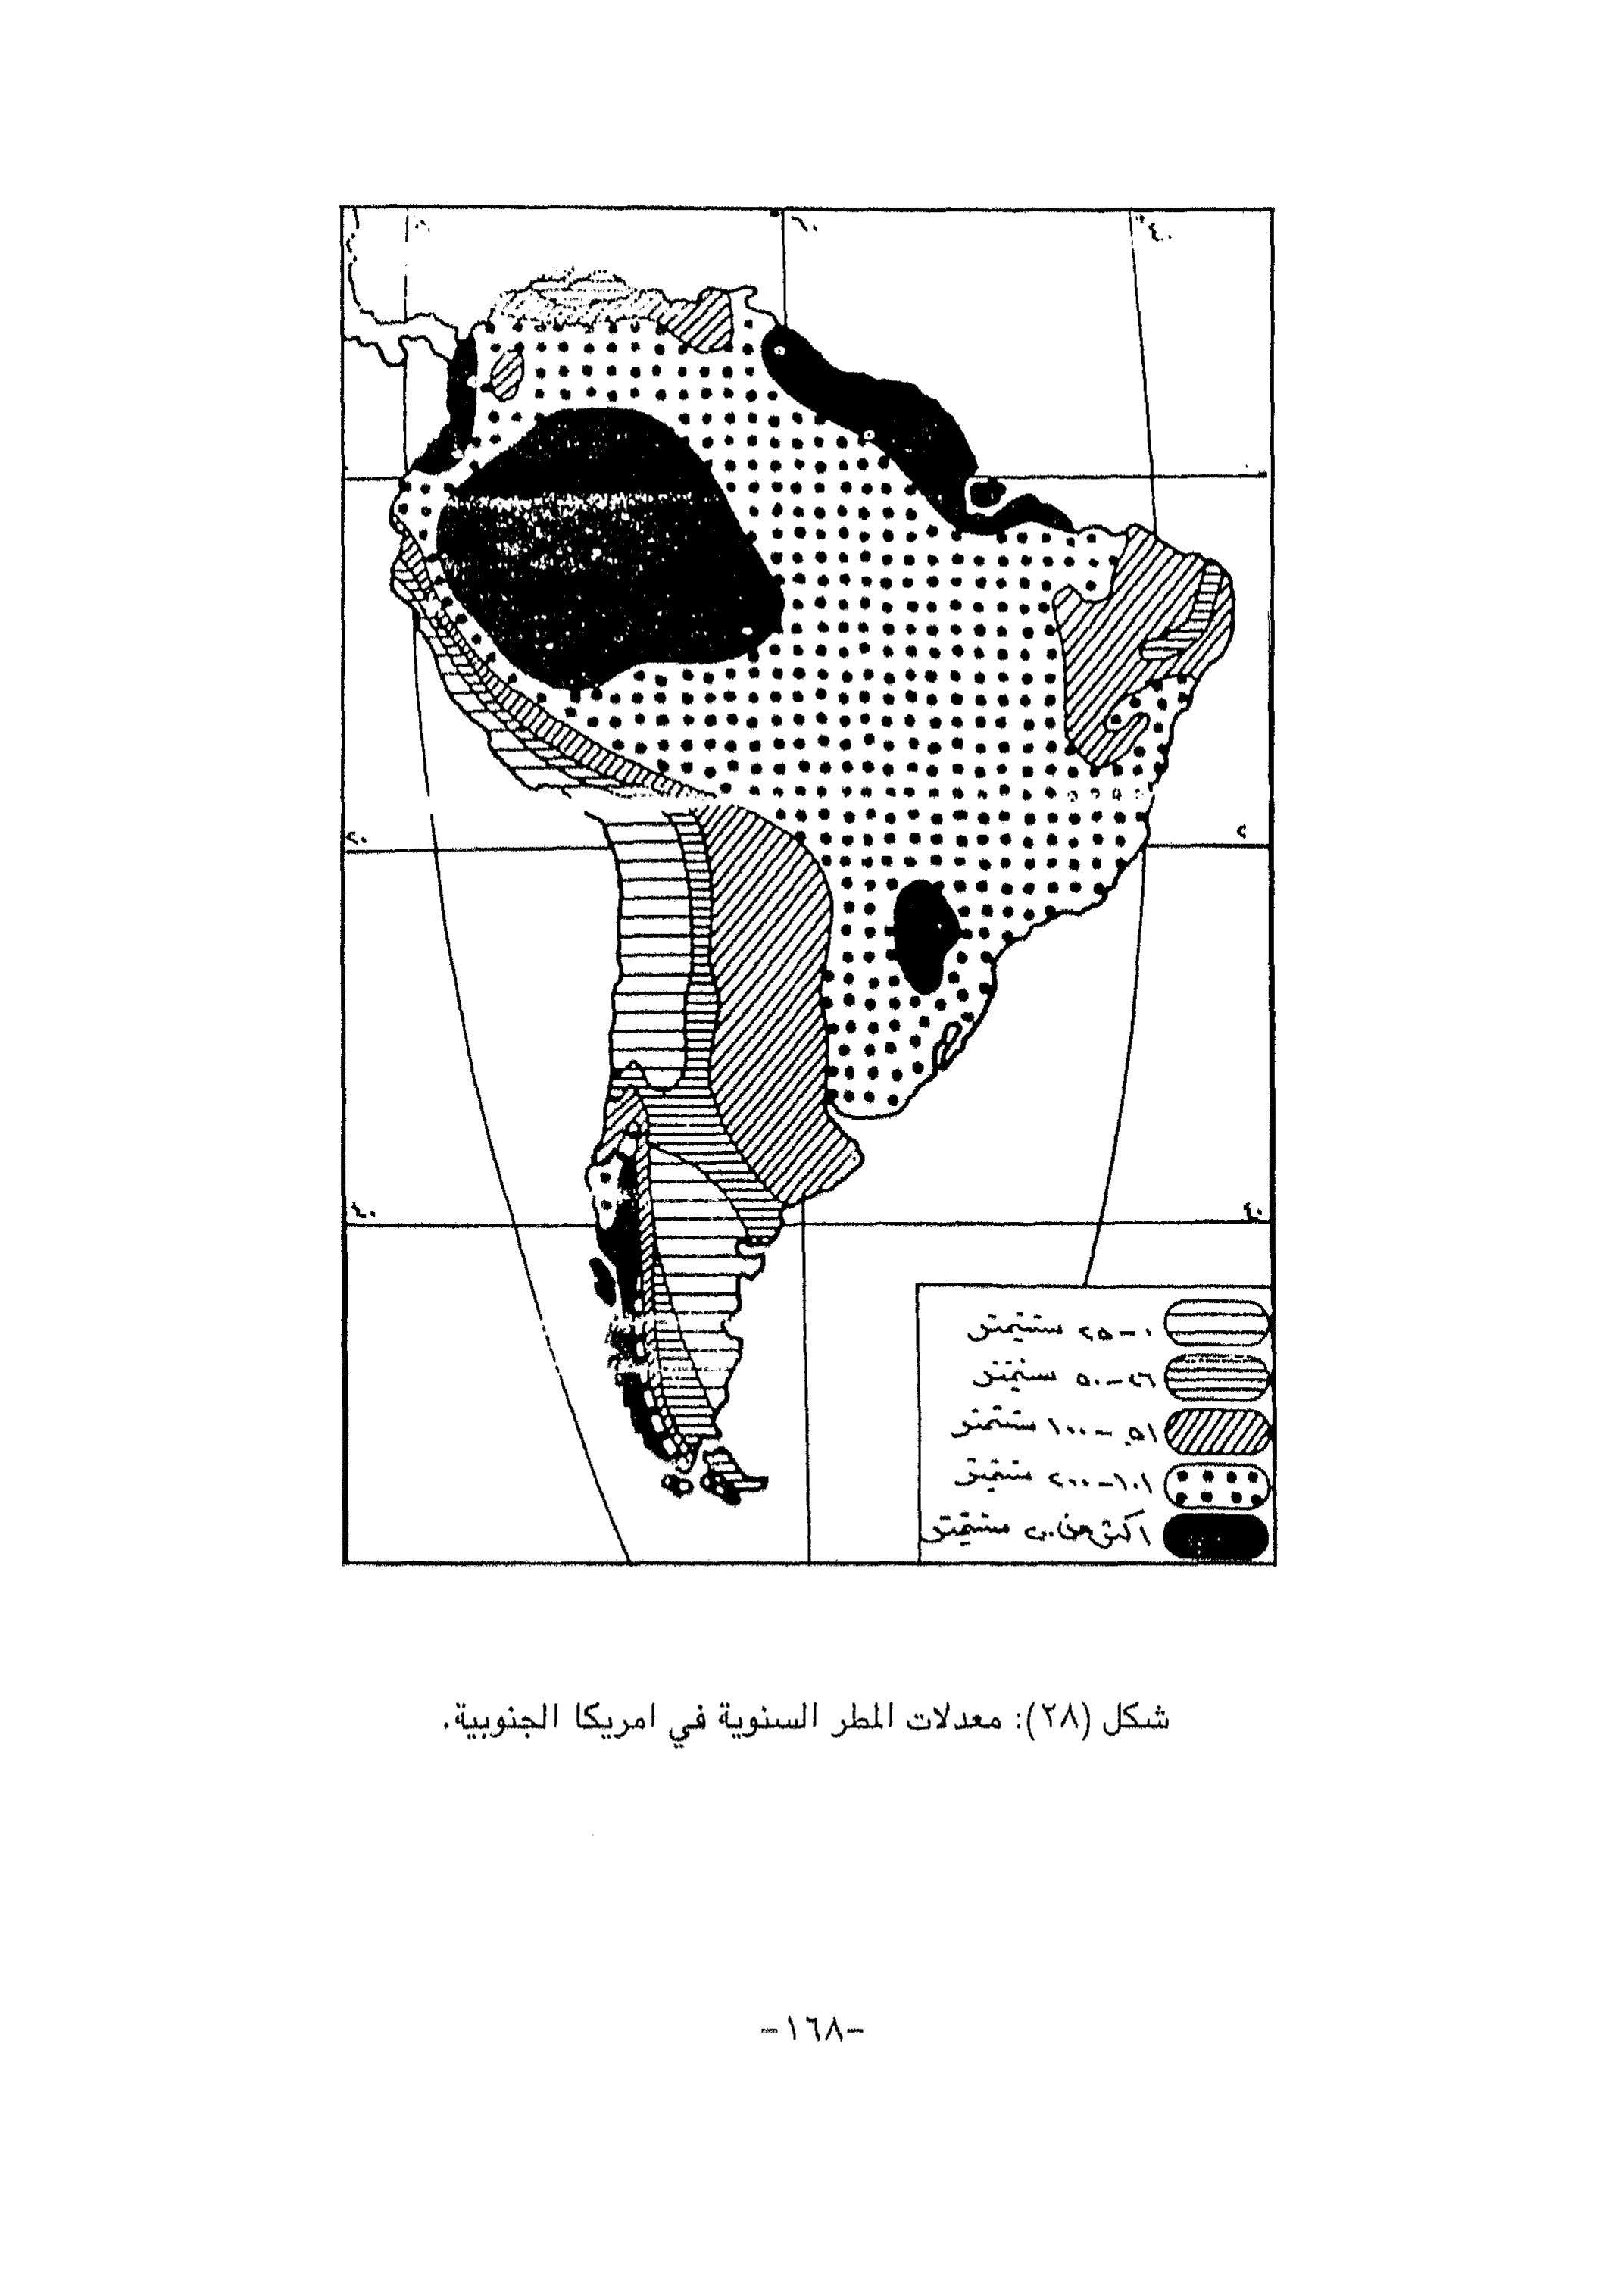 ٦٠
٤٠
٢٠
٤٠
٤٠
٠-٢٥ سنتيمتر
٢٦-٥٠ سنتيمتر
٥١-١٠٠ سنتيمتر
١٠١-٢٠٠ سنتيمتر
اكثر من ٢٠٠ سنتيمتر
شكل (٢٨): معدلات المطر السنوية في امريكا الجنوبية.
-١٦٨-